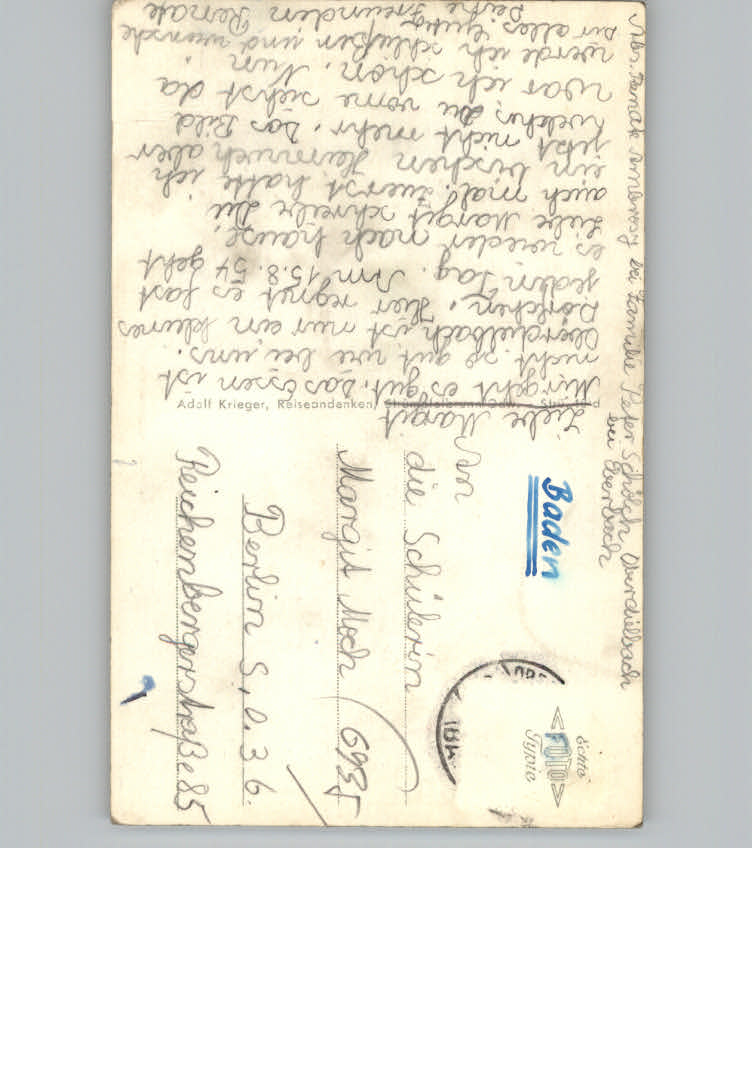 Abs. Renate Ambrosy bei Familie Peter Schölch, Oberdielbach
bei Eberbach
Liebe Margit
Mir geht es gut. Das Essen ist
nicht so gut wie bei uns.
Oberdielbach ist nur ein kleines
Dörfchen. Hier regnet es fast
jeden Tag. Am 15.8.54 geht
es wieder nach hause,
Liebe Margit schreibe Du
auch mal. Zuerst hatte ich
ein bischen Heimweh aber
jetzt nicht mehr. Das Bild
welches Du vorne siehst da
war ich schon. Nun
werde ich schlußen und wünsche
Dir alles gute
Deine Freundin Renate
Adolf Krieger, Reiseandenken,
Baden
An
die Schülerin
Margit Moch
6935
Berlin S.O.36.
Reichenbergerstraße 85
Echte
FOTO
Typie